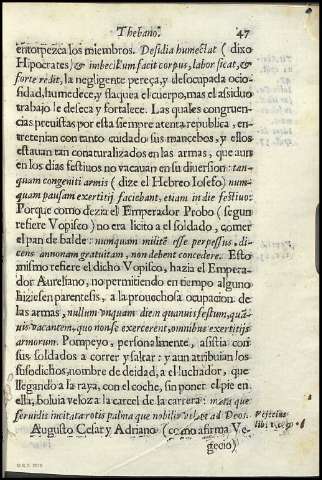 Thebano. 47
entorpezca los miembros. Desidia humectat ( dixo
Hipocrates) & imbecillum facit corpus, labor sicat, &
forte redit, la negligente pereça, y desocupada ocio-
sidad, humedece, y flaquea el cuerpo, mas el assiduo
trabajo le deseca y fortalece. Las quales congruen-
cias preuistas por esta siempre atenta republica, en-
tretenian con tanto cuidado sus mancebos, y ellos
estauan tan conaturalizados en las armas, que aun
en los dias festiuos no vacauan en su diuersion: tan-
quam congeniti armis ( dize el Hebreo Iosefo) num-
quam pausam exertitij faciebant, etiam in die festiuo:
Porque como dezia el Emperador Probo ( segun
refiere Vopisco) no era licito a el soldado, comer
el pan de balde: numquam milité esse perpessus, di-
cens annonam gratuitam, non debent concedere. Esto
mismo refiere el dicho Vopisco, hazia el Empera-
dor Aureliano, no permitiendo en tiempo alguno
hiziesen parentesis, a la prouechosa ocupacion de
las armas, nullum vnquam diem quanuis festum, qua-
uis vacantem, quo non se exercerent, omnibus exertitijs
armorum. Pompeyo, personalmente, asistia con
sus soldados a correr y saltar: y aun atribuian los
susodichos, nombre de deidad, a el luchador, que
llegando a la raya, con el coche, sin poner el pie en
ella, boluia veloz a la carcel de la carrera: meta que
feruidis incitata rotis palma que nobilis vehet ad Deos.
Augusto Cesar y Adriano (como afirma Ve-
gecio)
Vejecius
lib. 1.